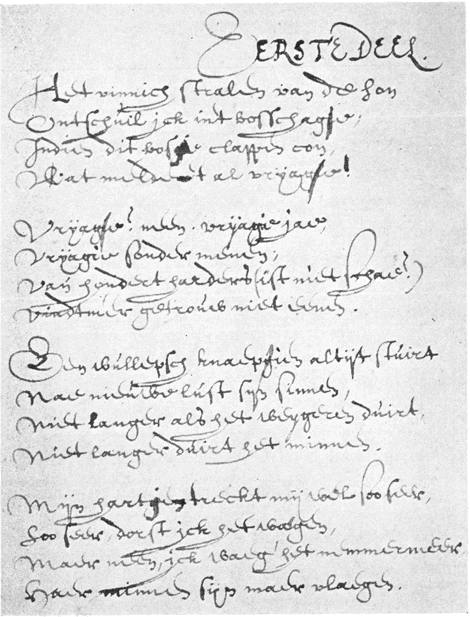 EERSTE DEEL.
Het vinnich stralen van de Son
Ontschuil jck int bosschagie,
Indien dit bosgie clappen con,
Wat melde t al vryagie!
Vryagie? meen. vryagie jae,
Vryagie sonder menen,
Van hondert harders (ist niet schae?)
Vindtmer getrouw niet eenen.
Een wullepsch knaepgien altijt stuirt
Nae nieuwe lust sijn sinnen,
Niet langer als het weygeren duirt,
Niet langer duirt het minnen.
Mijn hartgen treckt mij wel soo seer,
Soo seer, dorst jck het waegen,
Maer neen, jck waeg' het nemmermeer
Haer minnen sijn maer vlaegen.